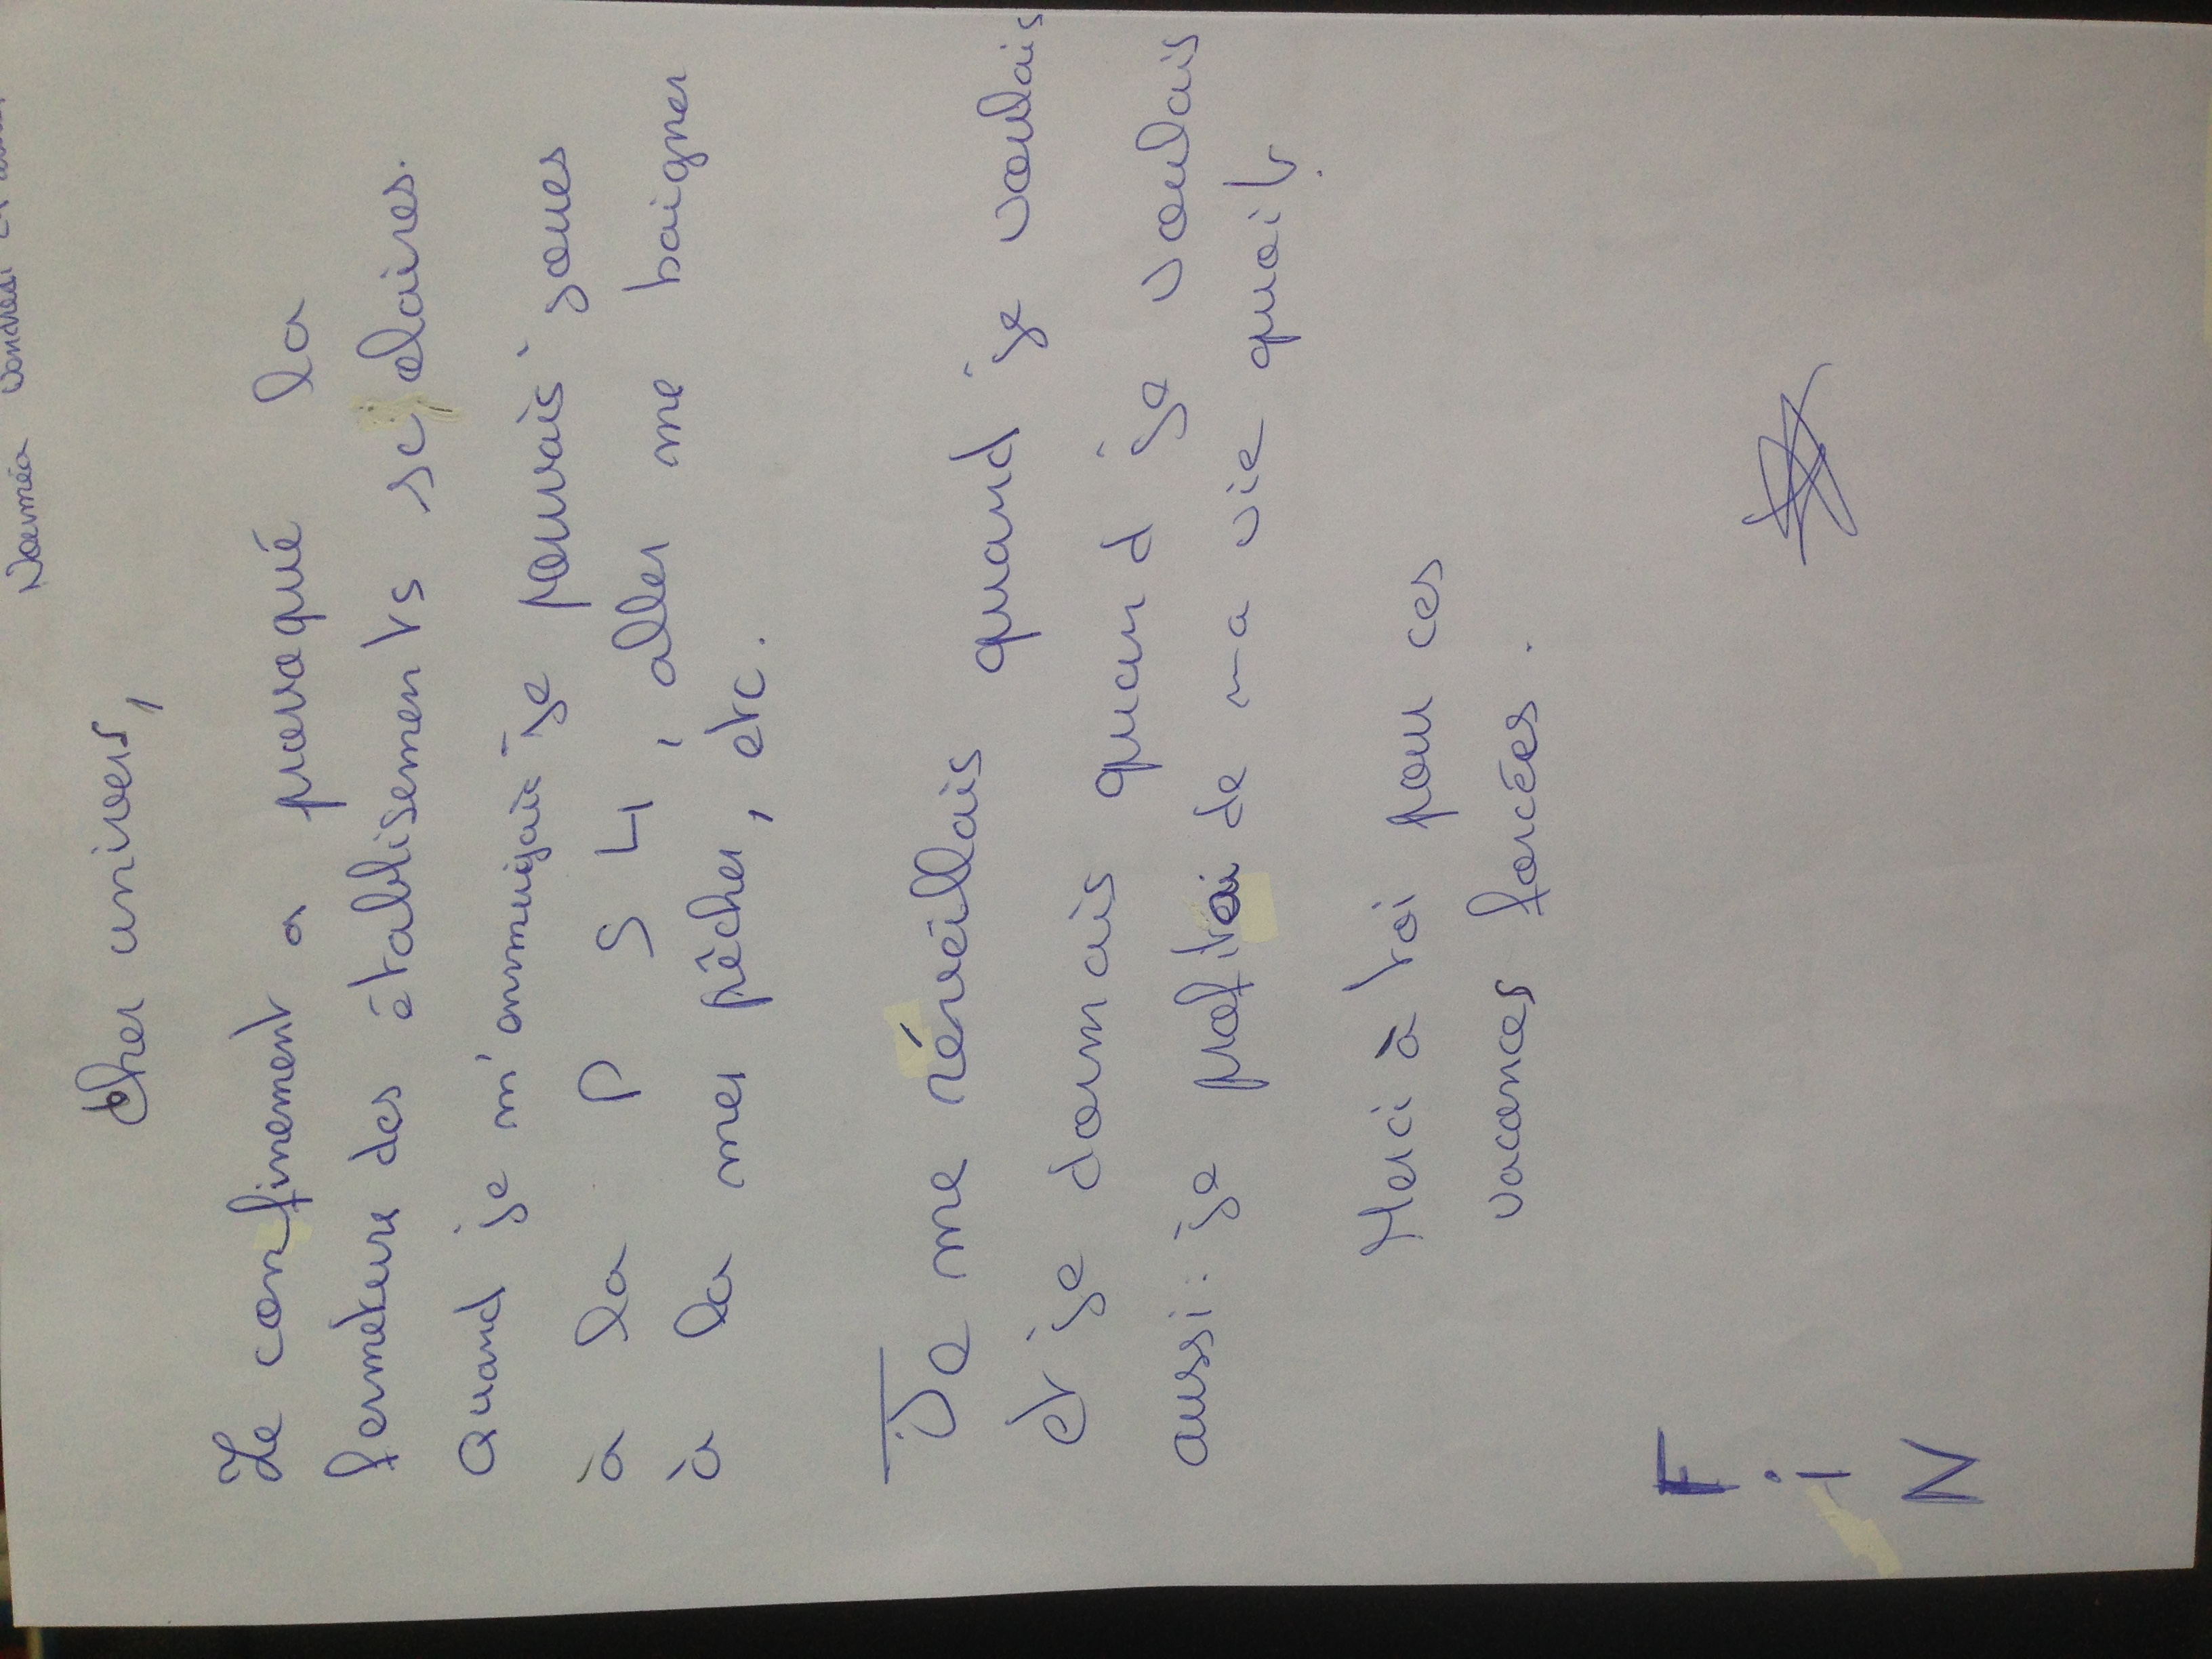 Nouméa vendredi
Cher univers,
Le confinement a provoqué la
fermeture des établisements scolaires.
Quand je m'ennuiyais je pouvais jouer
à la PS4, aller me baigner
à la mer pêcher, etc.
Je me réveillais quand je voulais
et je dormais quand je voulais
aussi: je profitai de ma vie quoit.
Merci à toi pour ces
vacances forcées.
F
i
N